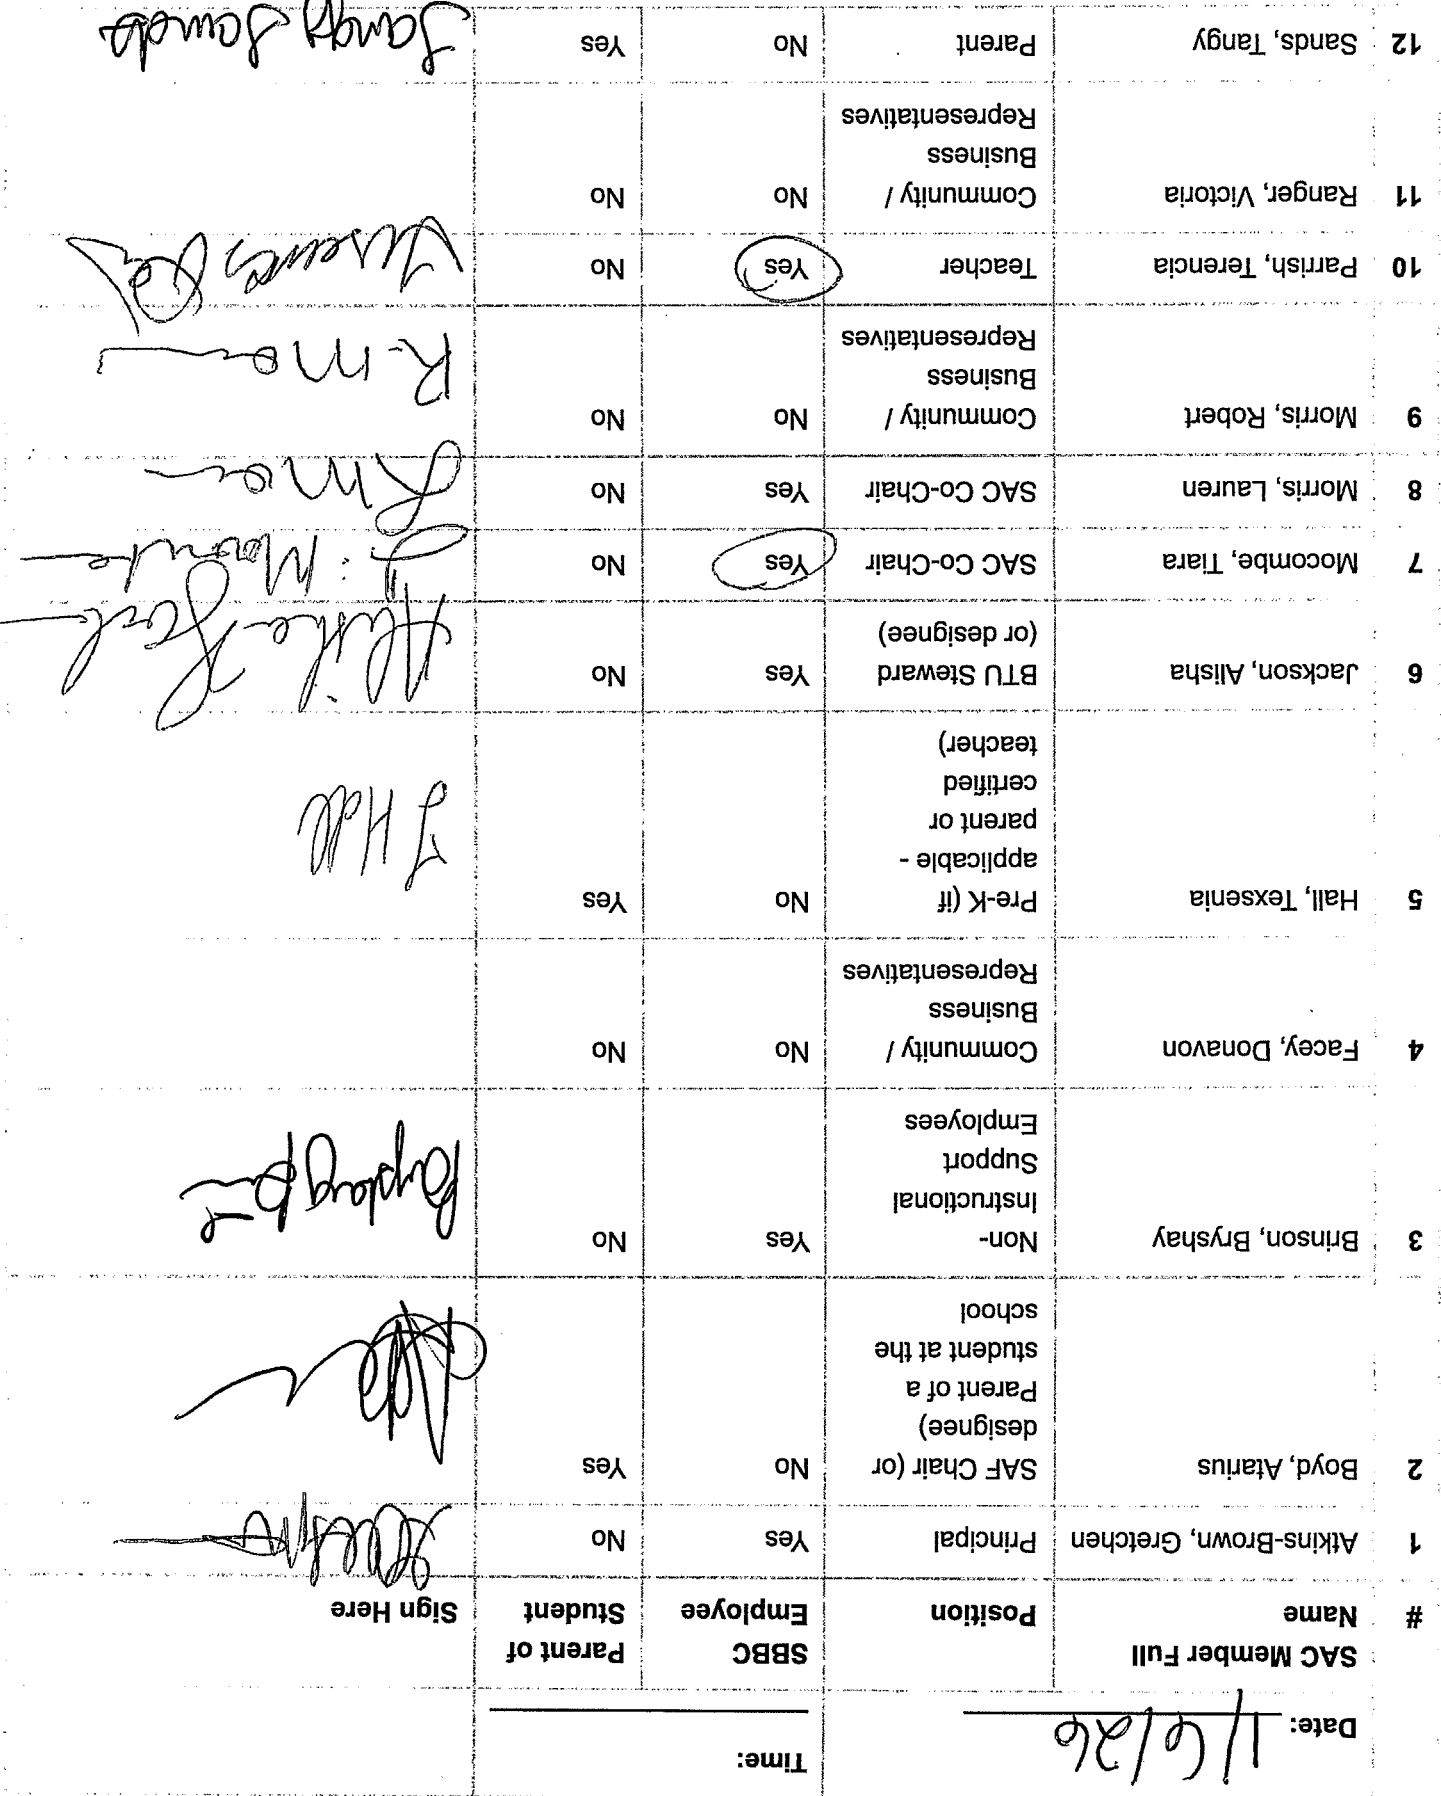 Date: 1/6/26 Time:
# SAC Member Full Name Position SBBC Employee Parent of Student Sign Here
1 Atkins-Brown, Gretchen Principal Yes No
2 Boyd, Atarius SAF Chair (or designee) Parent of a student at the school No Yes
3 Brinson, Bryshay Non-Instructional Support Employees Yes No
4 Facey, Donavon Community / Business Representatives No No
5 Hall, Texsenia Pre-K (if applicable - parent or certified teacher) No Yes T Hall
6 Jackson, Alisha BTU Steward (or designee) Yes No
7 Mocombe, Tiara SAC Co-Chair Yes No
8 Morris, Lauren SAC Co-Chair Yes No
9 Morris, Robert Community / Business Representatives No No
10 Parrish, Terencia Teacher Yes No
11 Ranger, Victoria Community / Business Representatives No No
12 Sands, Tangy Parent No Yes Tangy Sands